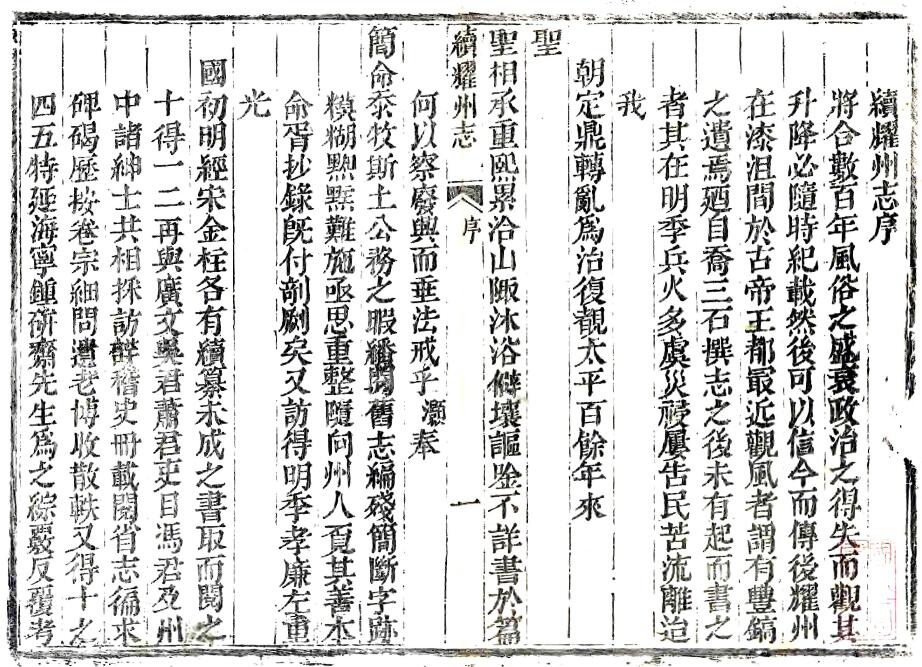 續耀州志序
將合數百年風俗之盛衰政治之得失而觀其
升降必隨時紀載然後可以信今而傳後耀州
在漆沮間於古帝王都最近觀風者謂有豐鎬
之遺焉廼自喬三石撰志之後未有起而書之
者其在明季兵火多虞災祲屢告民苦流離迨
我
朝定鼎轉亂爲治復觀太平百餘年來
聖
聖相承重熙累洽山陬沐浴僻壤謳吟不詳書於篇
續耀州志
序
一
何以察廢興而垂法戒乎灝奉
簡命忝牧斯土公務之暇繙閱舊志編殘簡斷字跡
糢糊㸃點難施亟思重整隨向州人覔其善本
俞胥抄錄旣付剞劂矣又訪得明季孝廉左重
光
國初明經宋金柱各有續纂未成之書取而閱之
十得一二再與廣文吳君蕭君吏目馮君及州
中諸紳士共相採訪群稽史冊載閱省志徧求
碑碣歷按卷宗細問遺老博收散軼又得十之
四五特延海寧鍾研齋先生爲之綜覈反覆考